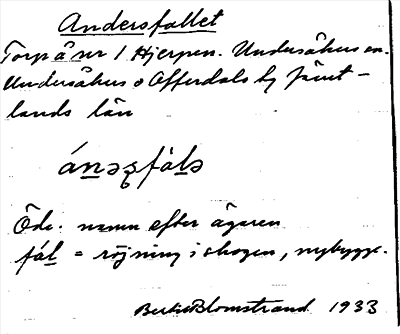 Andersfallet
Torp å nr 1 Hjerpen. Undersåkers sn.
Undersåkers o Offerdals tg Jämt-
lands län
ánəʂfàlə
Öde. namn efter ägaren
fál = röjning i skogen, nybygge.
Bertil Blomstrand 1933